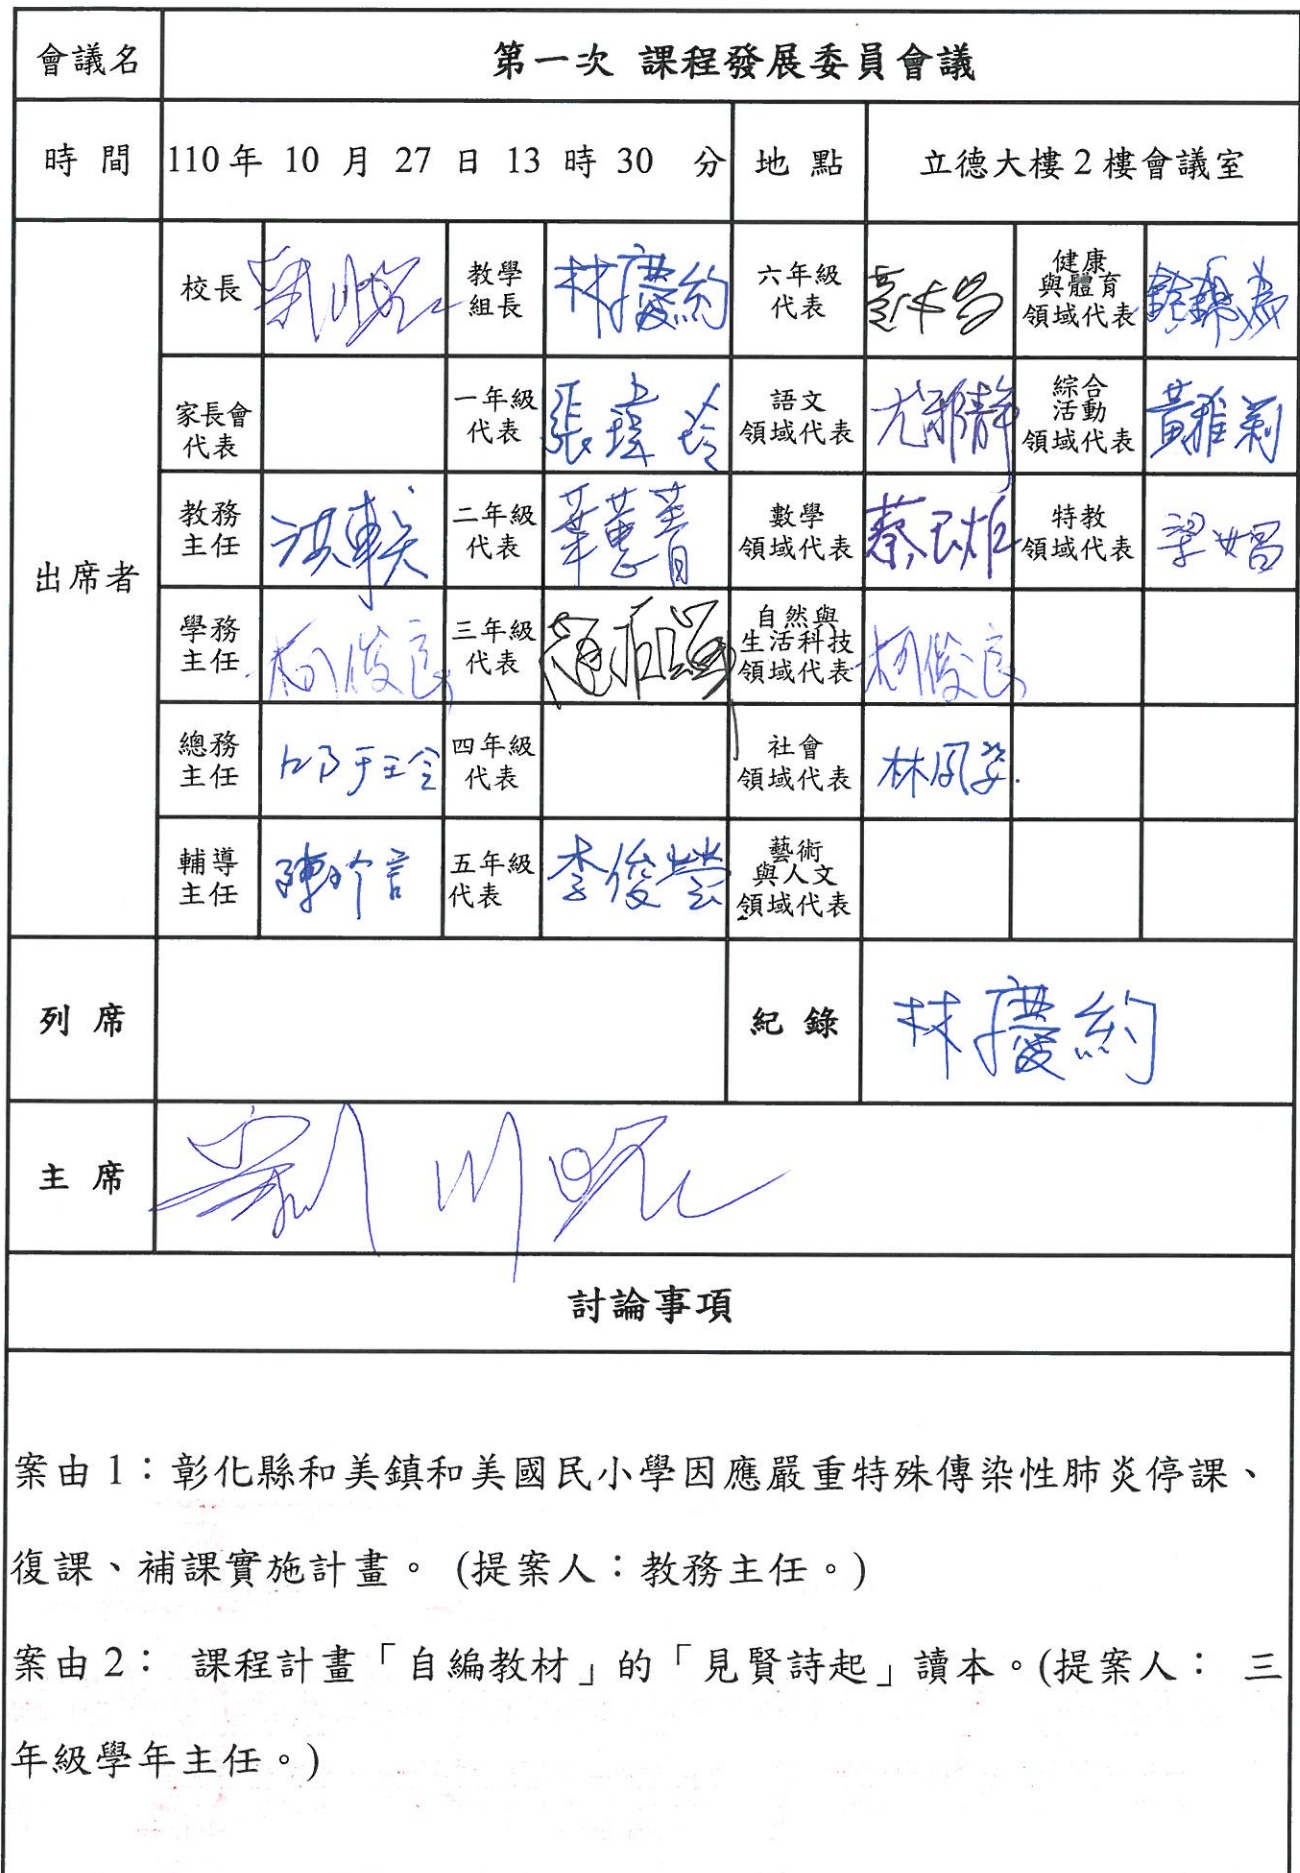 會議名 第一次 課程發展委員會議
時 間 110年 10 月 27 日 13 時 30 分 地 點 立德大樓2樓會議室
出席者
校長 教學組長 林慶約 六年級代表 健康與體育領域代表
家長會代表 一年級代表 張瑋玲 語文領域代表 尤雅靜 綜合活動領域代表 黃雅莉
教務主任 二年級代表 葉蕙菁 數學領域代表 特教領域代表
學務主任 柯俊良 三年級代表 自然與生活科技領域代表 柯俊良
總務主任 四年級代表 社會領域代表 林鳳姿
輔導主任 五年級代表 李俊瑩 藝術與人文領域代表
列 席 紀 錄 林慶約
主 席
討論事項
案由1：彰化縣和美鎮和美國民小學因應嚴重特殊傳染性肺炎停課、
復課、補課實施計畫。 (提案人：教務主任。)
案由2： 課程計畫「自編教材」的「見賢詩起」讀本。(提案人： 三
年級學年主任。)